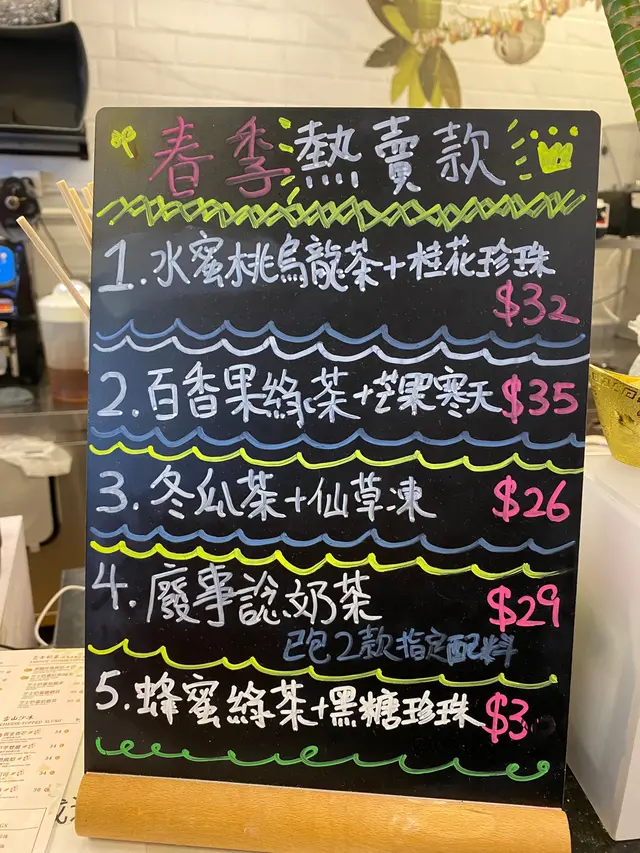 春季熱賣款
1.水蜜桃烏龍茶+桂花珍珠
$32
2.百香果綠茶+芒果寒天$35
3.冬瓜茶+仙草凍 $26
4.廢事諗奶茶 $29
已包2款指定配料
5.蜂蜜綠茶+黑糖珍珠$3